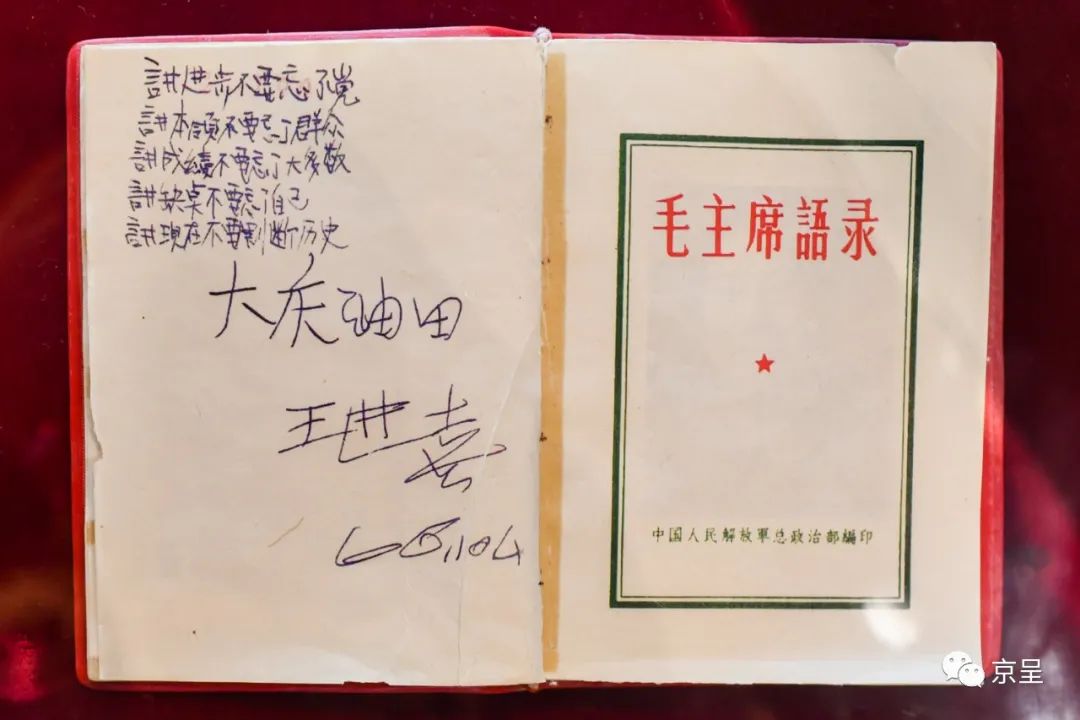 讲进步不要忘了党
讲本領不要忘了群众
讲成績不要忘了大多数
讲缺点不要忘了自己
讲現在不要割断历史
大庆油田
王进喜
毛主席語录
中国人民解放軍总政治部編印
京呈